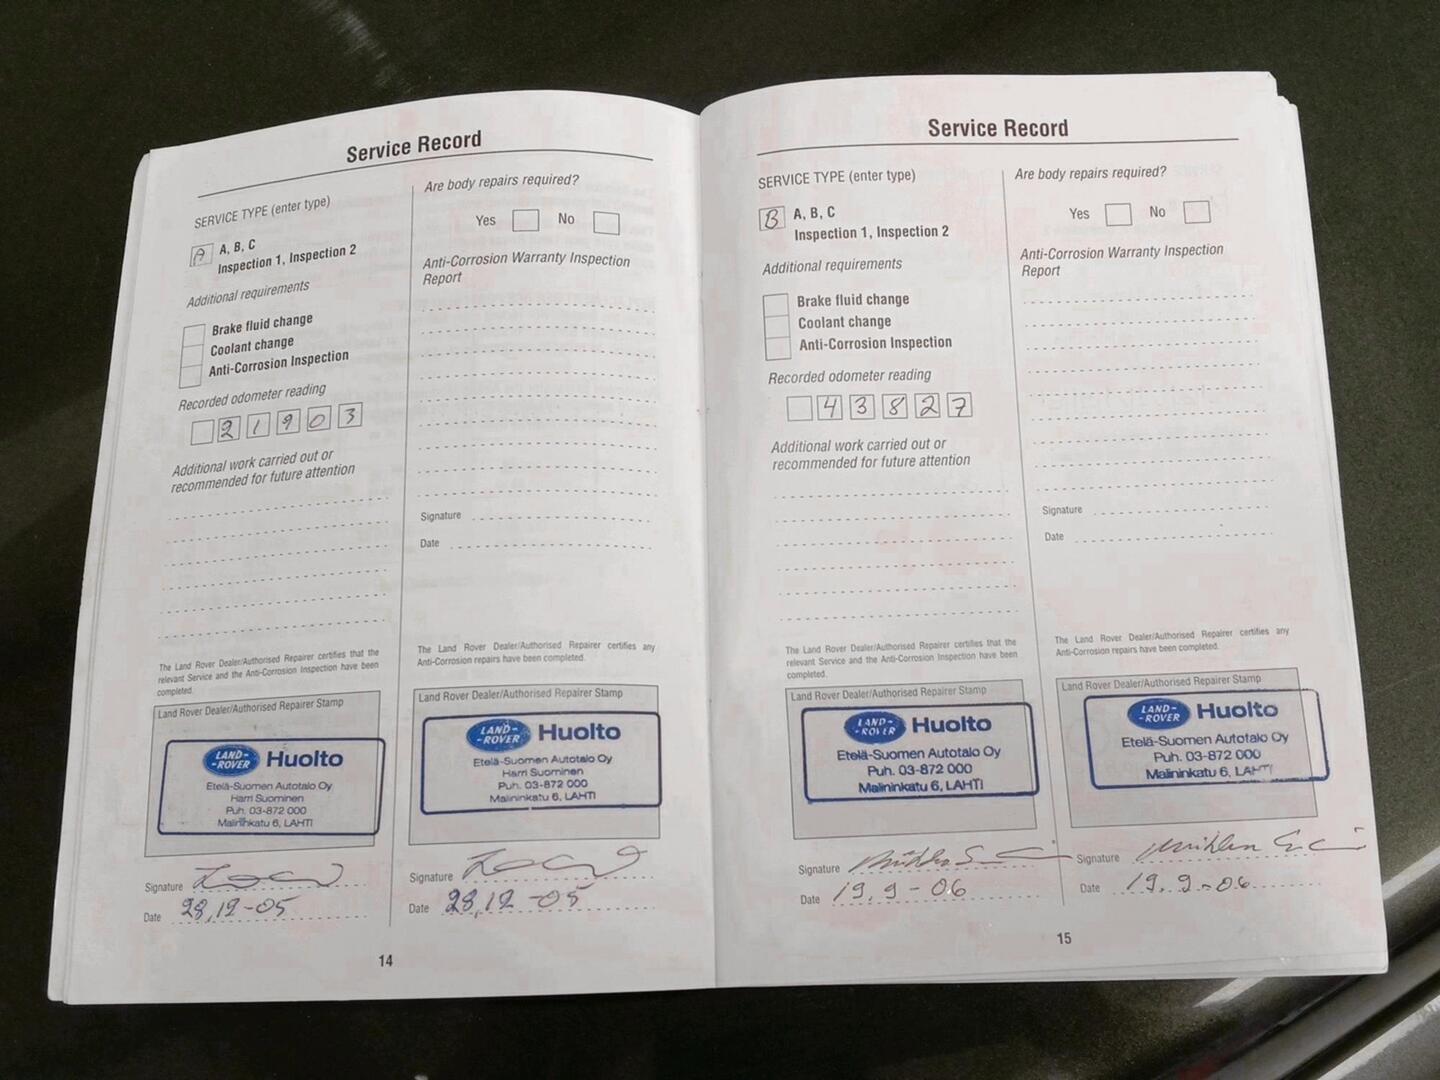 Service Record
SERVICE TYPE (enter type)
A A, B, C
Inspection 1, Inspection 2
Additional requirements
Brake fluid change
Coolant change
Anti-Corrosion Inspection
Recorded odometer reading
2 1 9 0 3
Additional work carried out or
recommended for future attention
The Land Rover Dealer/Authorised Repairer certifies that the
relevant Service and the Anti-Corrosion Inspection have been
completed.
Land Rover Dealer/Authorised Repairer Stamp
LAND-
-ROVER Huolto
Etelä-Suomen Autotalo Oy
Harri Suominen
Puh. 03-872 000
Malininkatu 6, LAHTI
Signature
Date 28,12-05
Are body repairs required?
Yes No
Anti-Corrosion Warranty Inspection
Report
Signature
Date
The Land Rover Dealer/Authorised Repairer certifies any
Anti-Corrosion repairs have been completed.
Land Rover Dealer/Authorised Repairer Stamp
LAND-
-ROVER Huolto
Etelä-Suomen Autotalo Oy
Harri Suominen
Puh. 03-872 000
Malininkatu 6, LAHTI
Signature
Date 28,12-05
14
Service Record
SERVICE TYPE (enter type)
B A, B, C
Inspection 1, Inspection 2
Additional requirements
Brake fluid change
Coolant change
Anti-Corrosion Inspection
Recorded odometer reading
4 3 8 2 7
Additional work carried out or
recommended for future attention
The Land Rover Dealer/Authorised Repairer certifies that the
relevant Service and the Anti-Corrosion Inspection have been
completed.
Land Rover Dealer/Authorised Repairer Stamp
LAND-
-ROVER Huolto
Etelä-Suomen Autotalo Oy
Puh. 03-872 000
Malininkatu 6, LAHTI
Signature
Date 19.9-06
Are body repairs required?
Yes No
Anti-Corrosion Warranty Inspection
Report
Signature
Date
The Land Rover Dealer/Authorised Repairer certifies any
Anti-Corrosion repairs have been completed.
Land Rover Dealer/Authorised Repairer Stamp
LAND-
-ROVER Huolto
Etelä-Suomen Autotalo Oy
Puh. 03-872 000
Malininkatu 6, LAHTI
Signature
Date 19.9-06
15